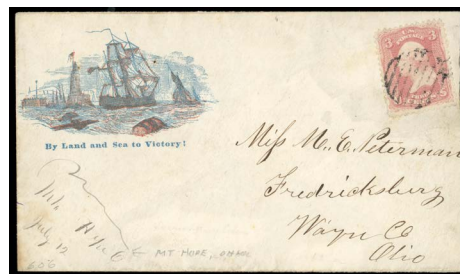 3 3
By Land and Sea to Victory!
Miss M. E. Peterman
Fredricksburg
Wayn Co
Ohio
July 12